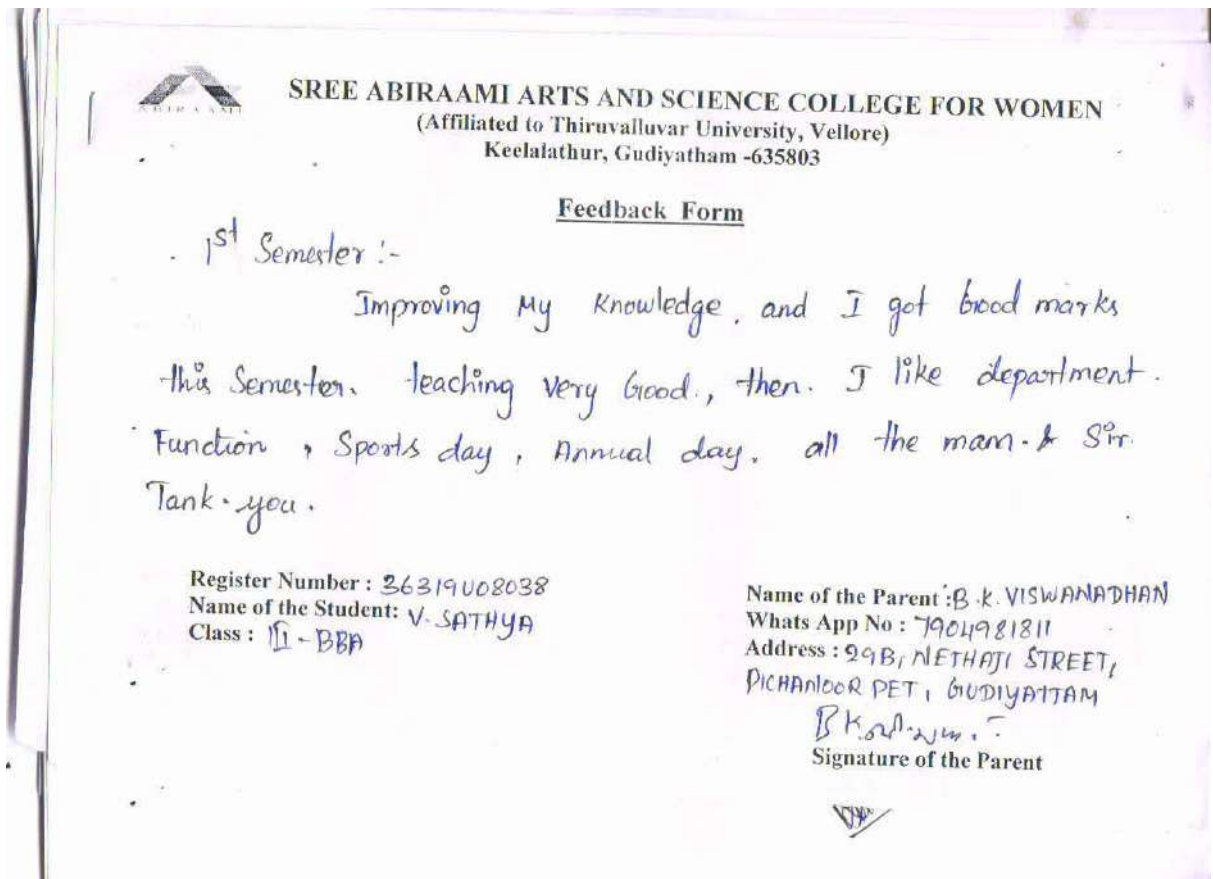 ABIRAAMI
SREE ABIRAAMI ARTS AND SCIENCE COLLEGE FOR WOMEN
(Affiliated to Thiruvalluvar University, Vellore)
Keelalathur, Gudiyatham -635803
Feedback Form
1st Semester :-
Improving My Knowledge, and I got Good marks
this Semester. teaching very Good., then. I like department.
Function , Sports day , Annual day. all the mam. & Sir.
Tank. you.
Register Number : 36319U08038
Name of the Student: V. SATHYA
Class : III - BBA
Name of the Parent : B.K. VISWANADHAN
Whats App No : 7904981811
Address : 29B, NETHAJI STREET,
PICHANOOR PET, GUDIYATTAM
Signature of the Parent